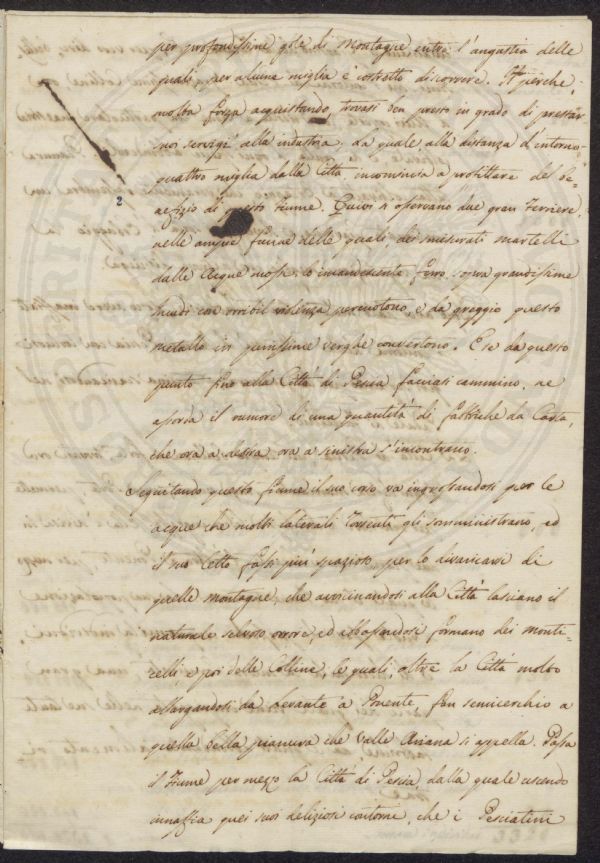 per profondissime gole di Montagne entro l'angustia delle
quali per alcune miglia è costretto discorrere. Il perchè,
molta forza acquistando, trovasi ben presto in grado di prestar
suoi servigi alla industria, la quale alla distanza d'intorno
quattro miglia dalla Città incomincia a profittare del be=
nefizio di questo Fiume. Quivi si osservano due gran Ferriere,
nelle ampie fucine delle quali, dei misurati martelli
dalle Acque mossi, lo incandescente ferro sopra grandissime
Incudi con orribil violenza percuotono, e da greggio questo
metallo in purissime verghe convertono. E se da questo
punto fino alla Città di Pescia facciasi cammino, ne
assorda il rumore di una quantità di fabbriche da Carta,
che ora a destra ora a sinistra s'incontrano.
Seguitando questo fiume il suo corso va ingrossandosi per le
acque che molti laterali Torrenti gli somministrano, ed
il suo Letto fassi più spazioso, per lo divaricarsi di
quelle montagne, che avvicinandosi alla Città lasciano il
naturale selvoso orrore, ed abbassandosi formano dei monti=
celli e poi delle Colline, le quali, oltre la Città molto
allargandosi da Levante a Ponente, fan semicerchio a
quella bella pianura che valle Ariana si appella. Passa
il Fiume per mezzo la Città di Pescia, dalla quale uscendo
innaffia quei suoi deliziosi contorni, che i Pesciatini
2